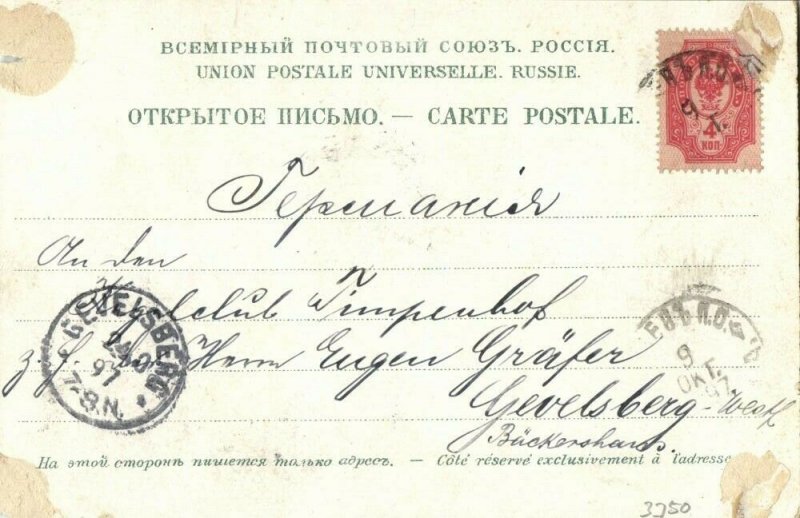 ВСЕМІРНЫЙ ПОЧТОВЫЙ СОЮЗЪ. РОССІЯ.
UNION POSTALE UNIVERSELLE. RUSSIE.
ОТКРЫТОЕ ПИСЬМО. — CARTE POSTALE.
4
КОП
Германія
An den
club Timpenhof
z. H. Herrn Eugen Gräfer
Gevelsberg-Westf
Bäckershaus.
GEVELSBERG
97
7-8.N.
9
ОКТ.
97
На этой сторонѣ пишется только адресъ. — Côté réservé exclusivement à l'adresse
3750